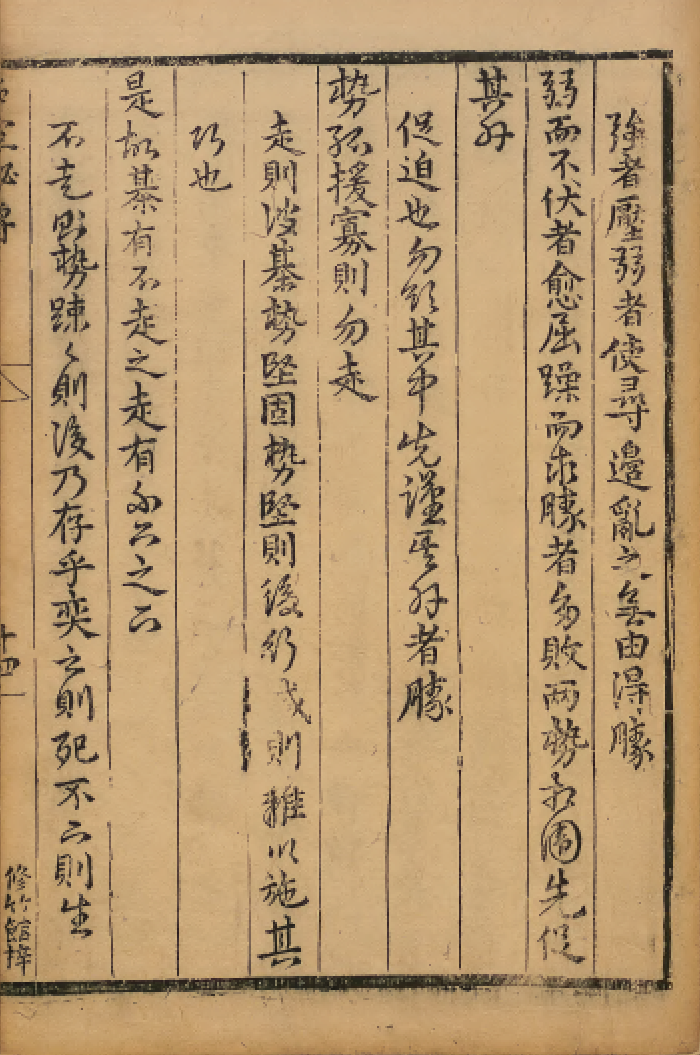 強者壓弱者使尋邉亂之無由得勝
弱而不伏者愈屈躁而求勝者多敗兩勢相圍先促
其外
促迫也勿於其中先謹其外者勝
勢孤援寡則勿走
走則彼棊勢堅固勢堅則後行或則難以施其
巧也
是故棊有不走之走有不下之下
不走則勢踈々則後乃存乎奕之則死不下則生
十四
修竹館梓